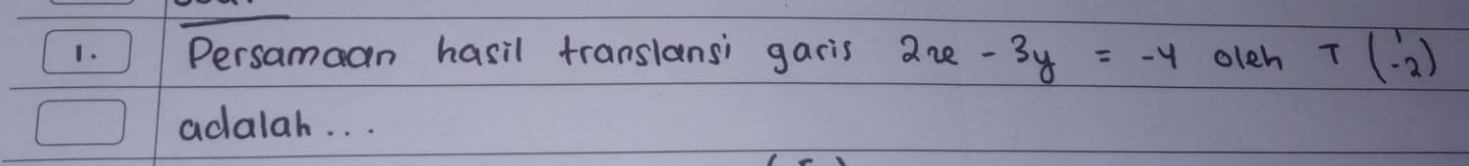 1. Persamaan hasil translansi garis 2x - 3y = -4 oleh T (1 -2)
adalah...